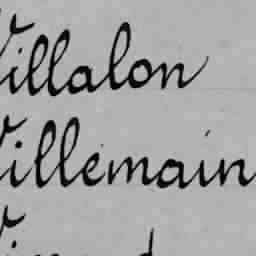 Villalon
Villemain